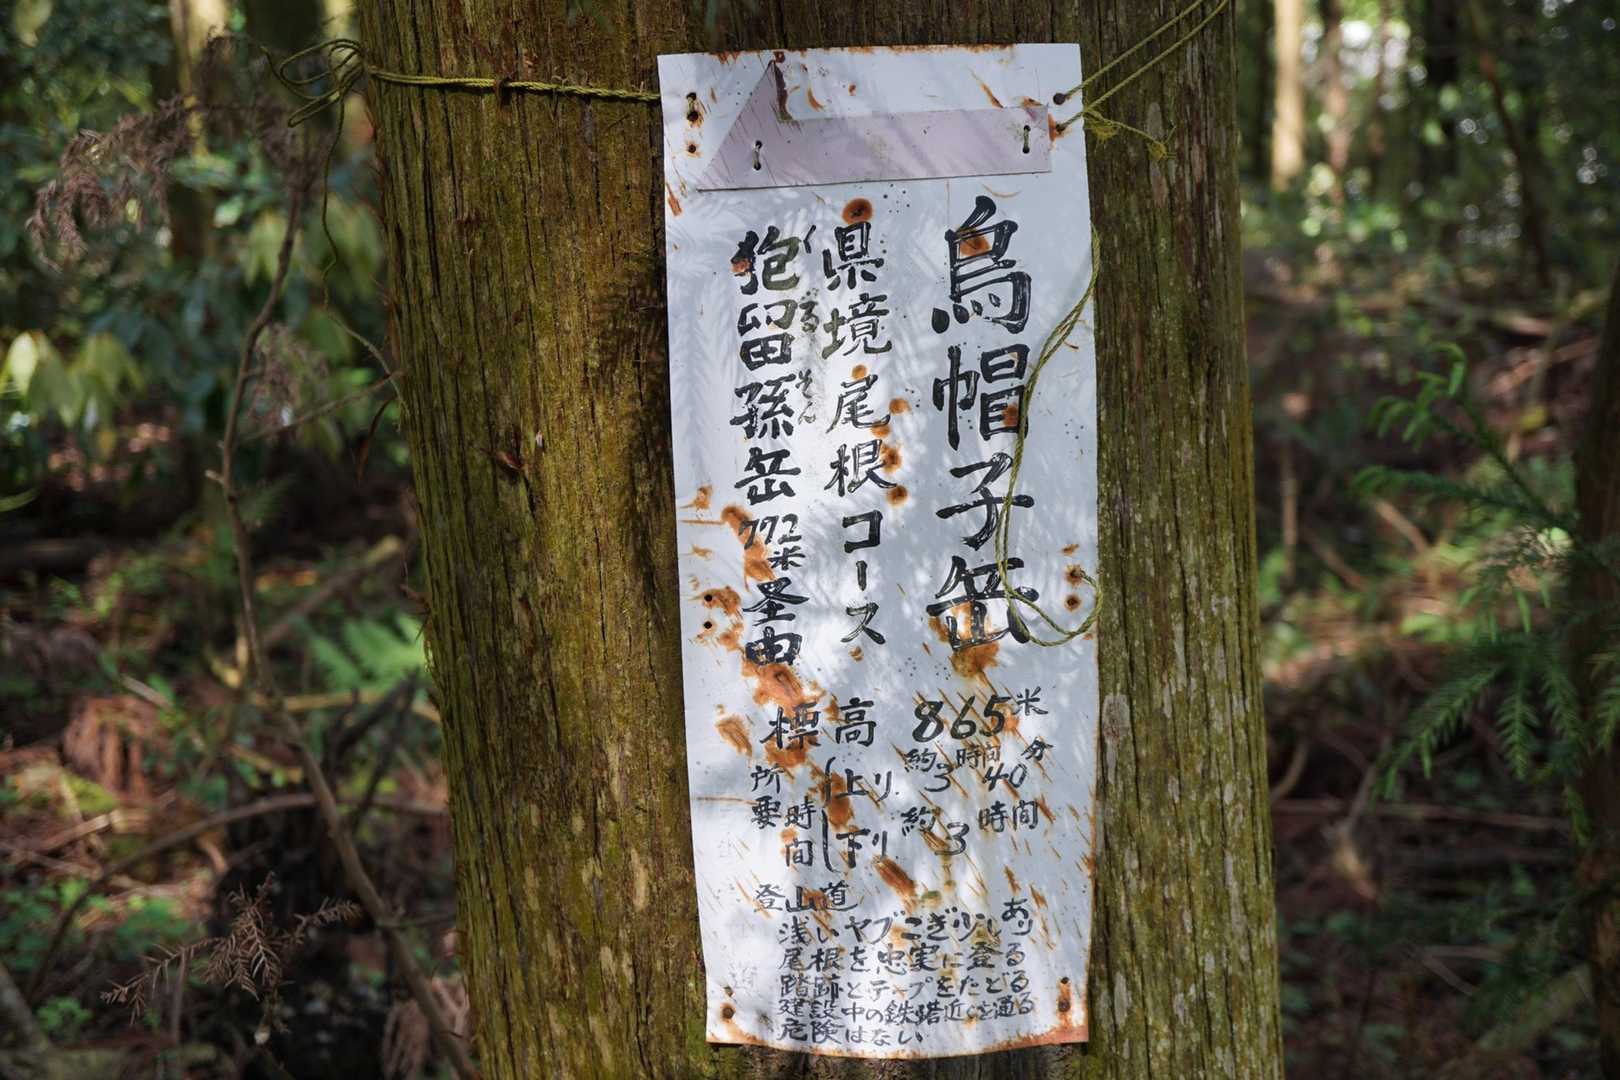 烏帽子岳
県境尾根コース
狍留孫岳772米圣由
くるそん
標高 865米
所要時間
(上り 約3時間40分
(下り 約3時間
登山道
浅いヤブこぎ少しあり
尾根を忠実に登る
踏跡とテープをたどる
建設中の鉄塔近くを通る
危険はない